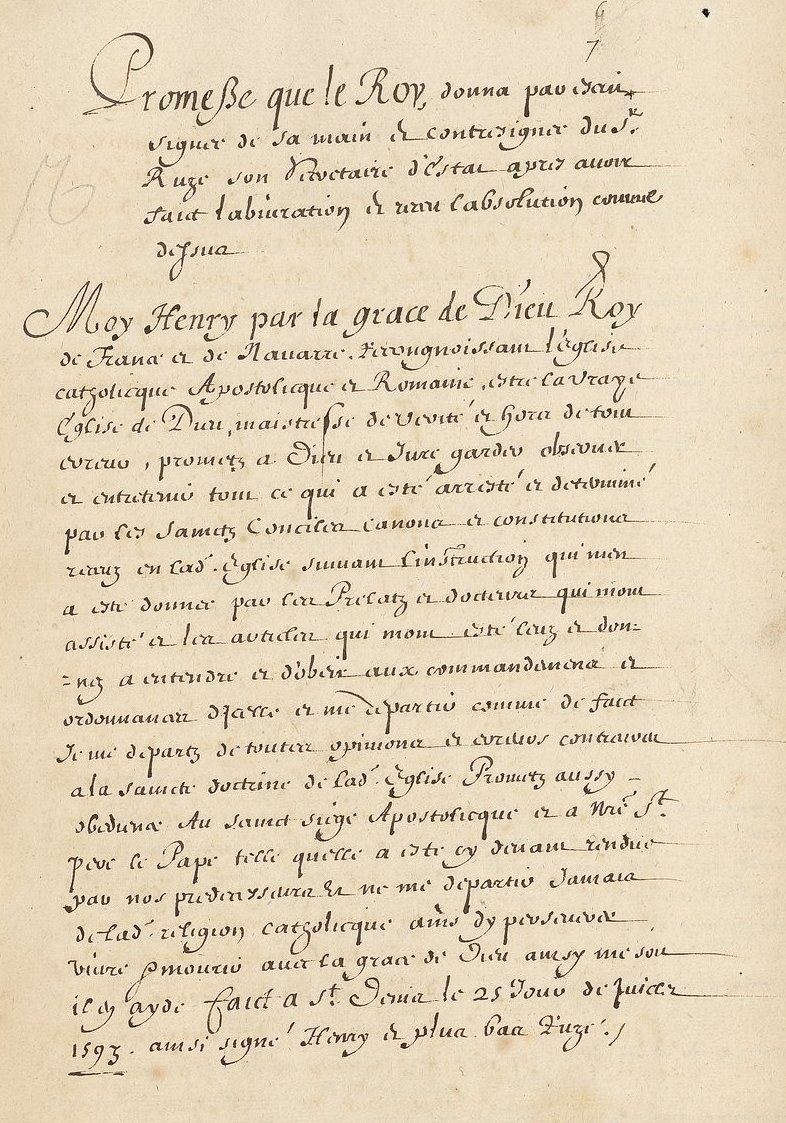 7
Promesse que le Roy, donna par escrit
signee de sa main et contresignee du Sr.
Ruze son Secretaire d'Estat apres avoir
faict labiuration et receu labsolution comme
dessus
Moy Henry par la grace de Dieu Roy
de France et de Navarre, Recongnoissant l'Eglise
catholicque Apostolicque et Romaine, estre la vraye
Eglise de Dieu, maistresse de verité et hors de tout
erreur, prometz a Dieu et Jure garder observer
et entretenir tout ce qui a esté arresté et determiné
par les Sainctz Conciles canons et constitutions
receuz en lad. Eglise suivant l'instruction qui men
a este donnee par les Prelatz et docteurs qui mont
assisté et les articles qui mont esté leuz et don=
=nez a entendre et d'obeir aux commandemens et
ordonnances d'Icelle et me departir comme de faict
Je me departz de toutes opinions et erreurs contraires
a la saincte doctrine de lad. Eglise Prometz aussy
obedience Au sainct siege Apostolicque et a nre St.
pere le Pape telle quelle a este cy devant rendue
par nos predecesseurs Et ne me departir Jamais
de lad. religion catholicque ains dy perseverer
vivre & mourir avec la grace de Dieu ainsy me soit
il en ayde faict a St. Denis le 25 Jour de Juillet
1593. ainsi signé Henry et plus bas Ruzé.